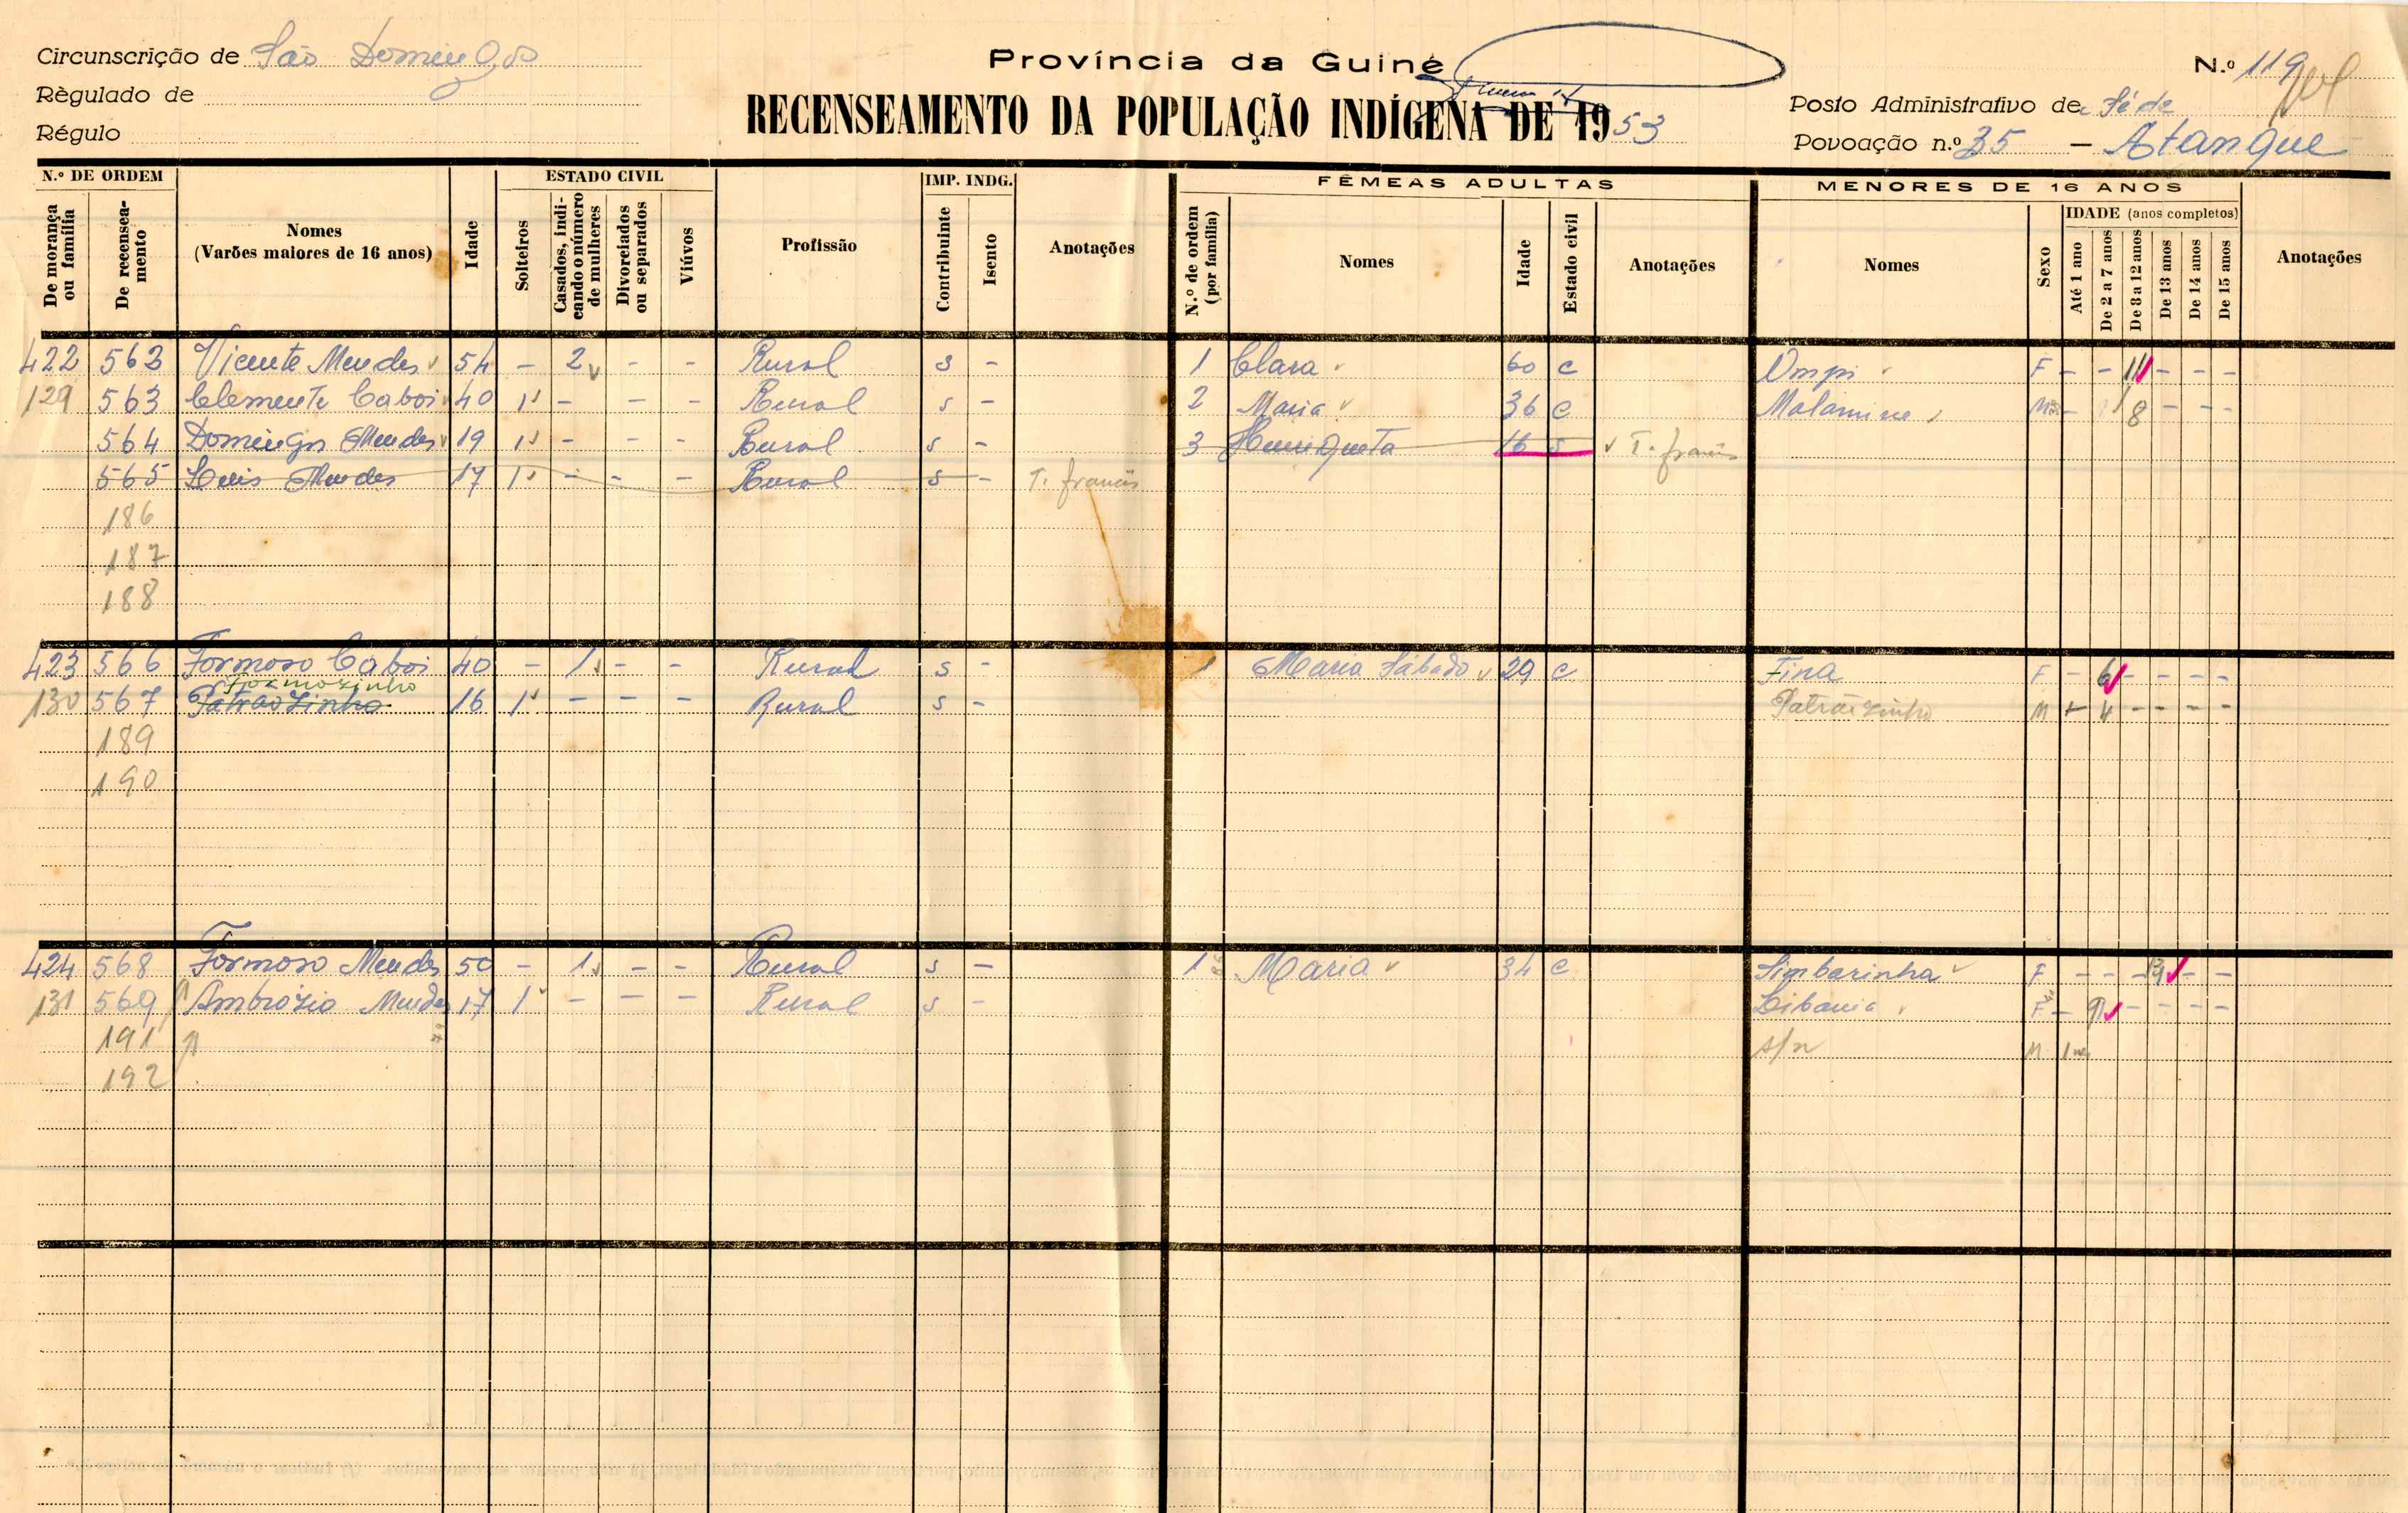 Circunscrição de São Domingos
Règulado de
Régulo
Província da Guiné
RECENSEAMENTO DA POPULAÇÃO INDÍGENA DE 1953
N.º 119
Posto Administrativo de Séde
Povoação n.º 35 — Atanque
N.º DE ORDEM
De morança ou família
De recenseamento
Nomes
(Varões maiores de 16 anos)
Idade
ESTADO CIVIL
Solteiros
Casados, indicando o número de mulheres
Divorciados ou separados
Viúvos
Profissão
IMP. INDG.
Contribuinte
Isento
Anotações
FÊMEAS ADULTAS
N.º de ordem (por família)
Nomes
Idade
Estado civil
Anotações
MENORES DE 16 ANOS
Nomes
Sexo
IDADE (anos completos)
Até 1 ano
De 2 a 7 anos
De 8 a 12 anos
De 13 anos
De 14 anos
De 15 anos
Anotações
422 563 Vicente Mendes 54 - 2 - - Rural s - 1 Clara 60 c Ompi F - - 11 - - -
129 563 Clemente Caboi 40 1 - - - Rural s - 2 Maria 36 c Malamine M - 8 - - -
564 Domingos Mendes 19 1 - - - Rural s - 3 Henriqueta 16 s T. francês
565 Luis Mendes 17 1 - - - Rural s - T. francês
186
187
188
423 566 Formoso Caboi 40 - 1 - - Rural s - 1 Maria Sábado 29 c Fina F - 6 - - - -
Formozinho
130 567 Patrãozinho 16 1 - - - Rural s - Patrãozinho M - 4 - - - -
189
190
424 568 Formoso Mendes 50 - 1 - - Rural s - 1 Maria 34 c Simbarinha F - - - 13 - -
131 569 Ambrózio Mendes 17 1 - - - Rural s - Libania F - - - - -
191 s/n M 1
192